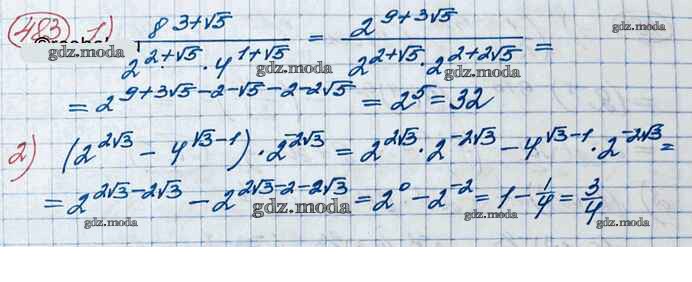 483 1) 8^(3+√5) / (2^(2+√5) · 4^(1+√5)) = 2^(9+3√5) / (2^(2+√5) · 2^(2+2√5)) =
= 2^(9+3√5-2-√5-2-2√5) = 2^5 = 32
2) (2^(2√3) - 4^(√3-1)) · 2^(-2√3) = 2^(2√3) · 2^(-2√3) - 4^(√3-1) · 2^(-2√3) =
= 2^(2√3-2√3) - 2^(2√3-2-2√3) = 2^0 - 2^(-2) = 1 - 1/4 = 3/4
gdz.moda
gdz.moda
gdz.moda
gdz.moda
gdz.moda
gdz.moda
gdz.moda
gdz.moda
gdz.moda